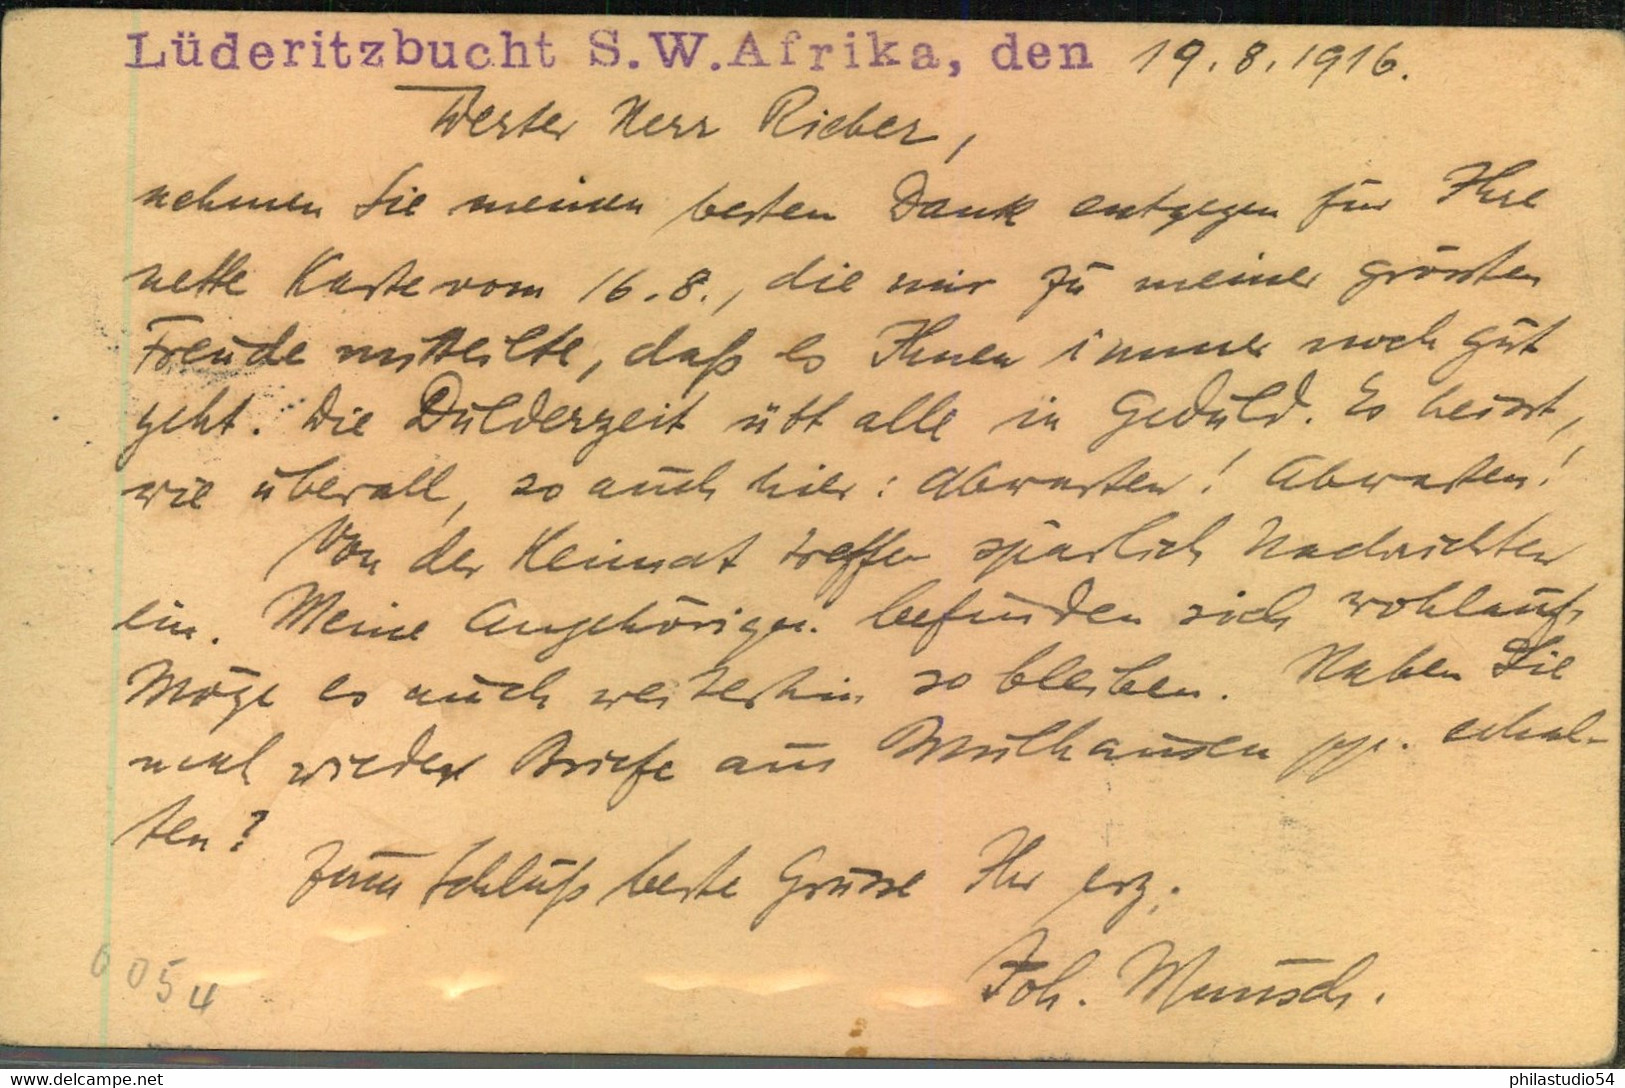 Lüderitzbucht S.W.Afrika, den 19.8.1916.
Werter Herr Rieber,
nehmen Sie meinen besten Dank entgegen für Ihre
nette Karte vom 16.8., die mir zu meiner grössten
Freude mitteilte, daß es Ihnen immer noch gut
geht. Die Dulderzeit übt alle in Geduld. Es heisst,
wie überall, so auch hier: Abwarten! Abwarten!
Von der Heimat treffen spärlich Nachrichten
ein. Meine Angehörigen befinden sich wohlauf.
Möge es auch weiterhin so bleiben. Haben Sie
mal wieder Briefe aus Mülhausen pp. erhal-
ten?
Zum Schluß beste Grüsse Ihr erg.
Joh. Munsch.
6054
delcampe.net
philastudio54